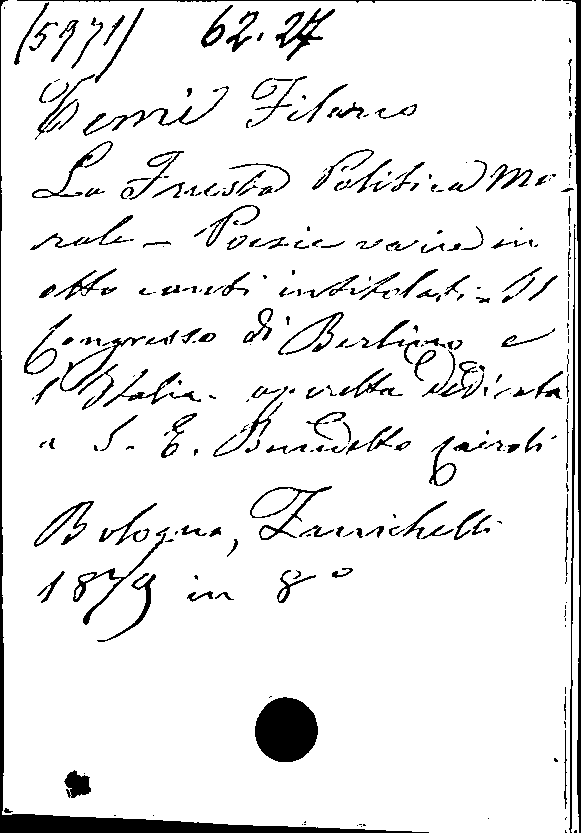 (5971) 62.27
Temi Filarco
La Frusta Politica Mo-
rale - Poesie varie in
otto canti intitolati - Il
Congresso di Berlino e
l'Italia - operetta dedicata
a S. E. Benedetto Cairoli
Bologna, Zanichelli
1879 in 8°